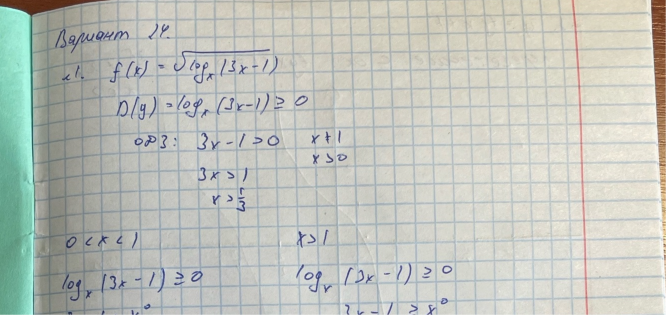 Вариант 24.
№1. f(x) = √(log_x (3x-1))
D(y) = log_x (3x-1) ≥ 0
ОДЗ: 3x-1 > 0 x ≠ 1
x > 0
3x > 1
x > 1/3
0 < x < 1 x > 1
log_x (3x-1) ≥ 0 log_x (3x-1) ≥ 0
3x-1 ≥ x⁰